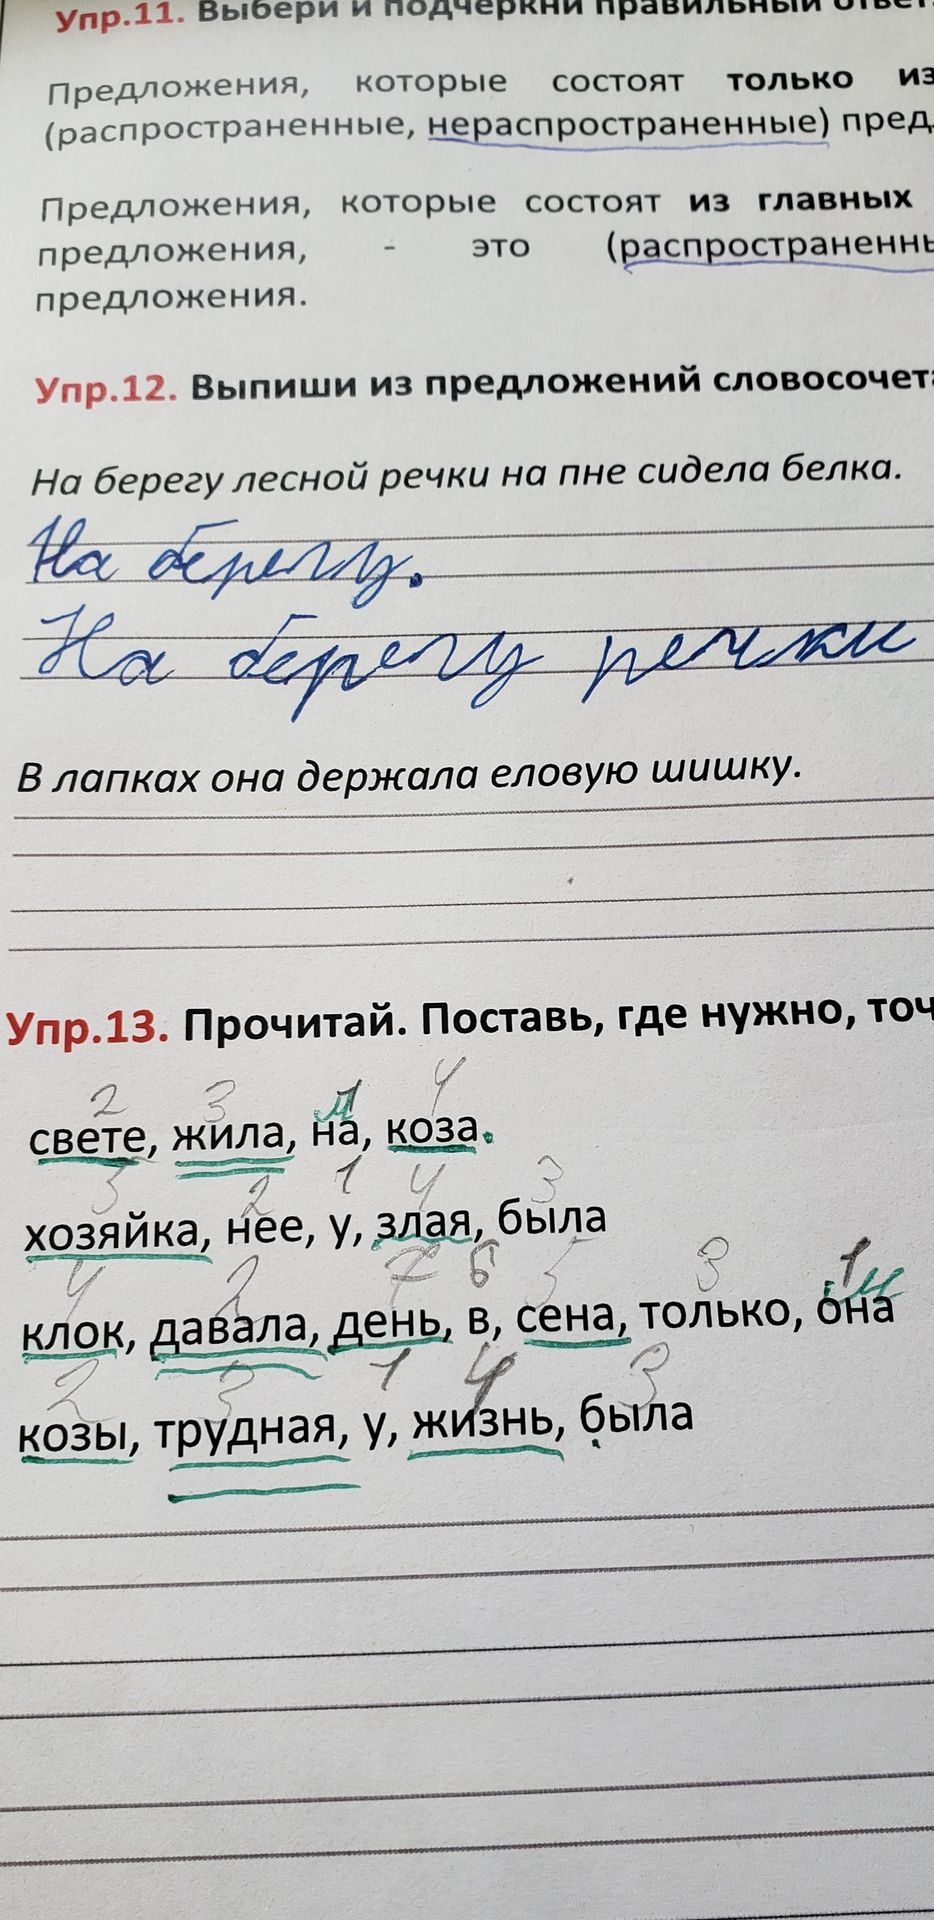 Упр.11. Выбери и подчеркни правильный ответ.
Предложения, которые состоят только из
(распространенные, нераспространенные) пред
Предложения, которые состоят из главных
предложения, - это (распространенны
предложения.
Упр.12. Выпиши из предложений словосочета
На берегу лесной речки на пне сидела белка.
На берегу.
На берегу речки
В лапках она держала еловую шишку.
Упр.13. Прочитай. Поставь, где нужно, точ
2 3 1 4
свете, жила, на, коза.
3 2 1 4 3
хозяйка, нее, у, злая, была
4 2 7 6 5 3 1
клок, давала, день, в, сена, только, она
2 3 1 4 3
козы, трудная, у, жизнь, была